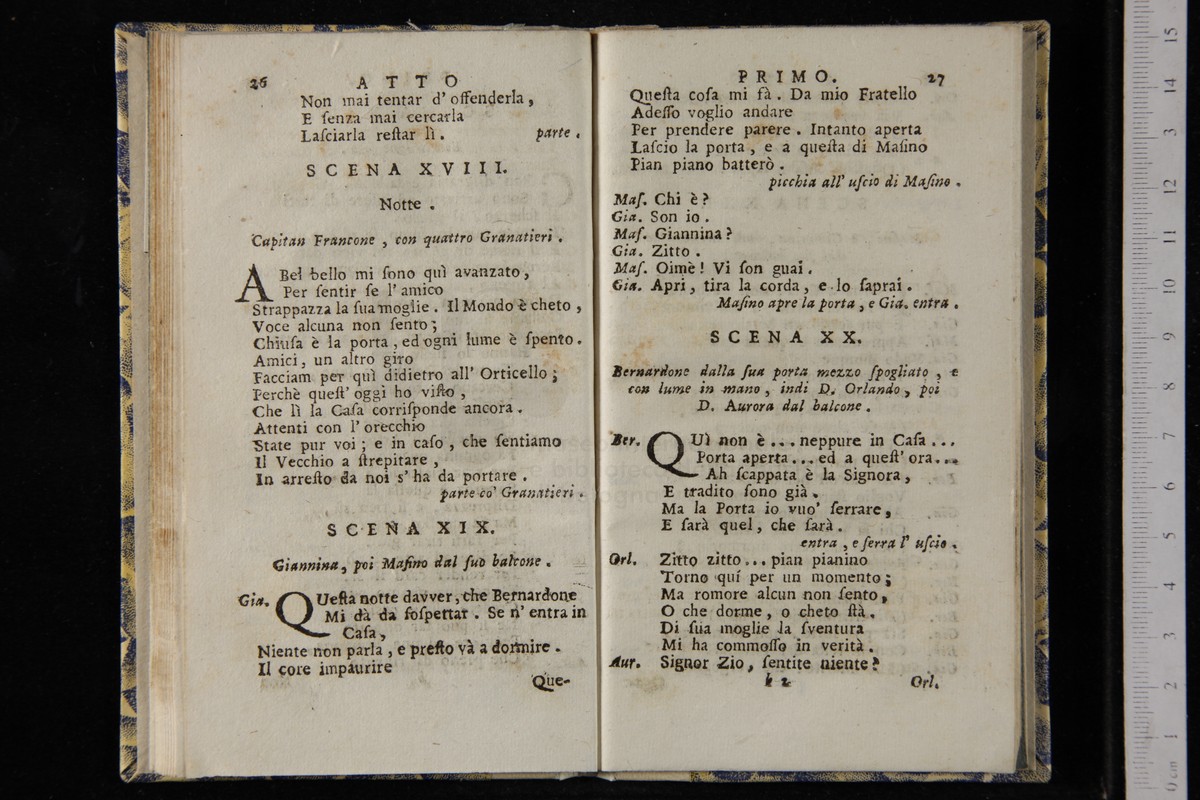 26 ATTO
Non mai tentar d' offenderla,
E ſenza mai cercarla
Laſciarla reſtar lì. parte.
SCENA XVIII.
Notte.
Capitan Francone, con quattro Granatieri.
A Bel bello mi ſono quì avanzato,
Per ſentir ſe l' amico
Strappazza la ſua moglie. Il Mondo è cheto,
Voce alcuna non ſento;
Chiuſa è la porta, ed ogni lume è ſpento.
Amici, un altro giro
Facciam per quì didietro all' Orticello;
Perchè queſt' oggi ho viſto,
Che lì la Caſa corriſponde ancora.
Attenti con l' orecchio
State pur voi; e in caſo, che ſentiamo
Il Vecchio a ſtrepitare,
In arreſto da noi s' ha da portare.
parte co' Granatieri.
SCENA XIX.
Giannina, poi Maſino dal ſuo balcone.
Gia. QUeſta notte davver, che Bernardone
Mi dà da ſoſpettar. Se n' entra in
Caſa,
Niente non parla, e preſto và a dormire.
Il core impaurire
Que-
PRIMO. 27
Queſta coſa mi fà. Da mio Fratello
Adeſſo voglio andare
Per prendere parere. Intanto aperta
Laſcio la porta, e a queſta di Maſino
Pian piano batterò.
picchia all' uſcio di Maſino.
Maſ. Chi è?
Gia. Son io.
Maſ. Giannina?
Gia. Zitto.
Maſ. Oimè! Vi ſon guai.
Gia. Apri, tira la corda, e lo ſaprai.
Maſino apre la porta, e Gia. entra.
SCENA XX.
Bernardone dalla ſua porta mezzo ſpogliato, e
con lume in mano, indi D. Orlando, poi
D. Aurora dal balcone.
Ber. QUì non è... neppure in Caſa...
Porta aperta... ed a queſt' ora...
Ah ſcappata è la Signora,
E tradito ſono già.
Ma la Porta io vuo' ferrare,
E ſarà quel, che ſarà.
entra, e ferra l' uſcio.
Orl. Zitto zitto... pian pianino
Torno quí per un momento;
Ma romore alcun non ſento,
O che dorme, o cheto ſtà.
Di ſua moglie la ſventura
Mi ha commoſſo in verità.
Aur. Signor Zio, ſentite niente?
b 2 Orl.